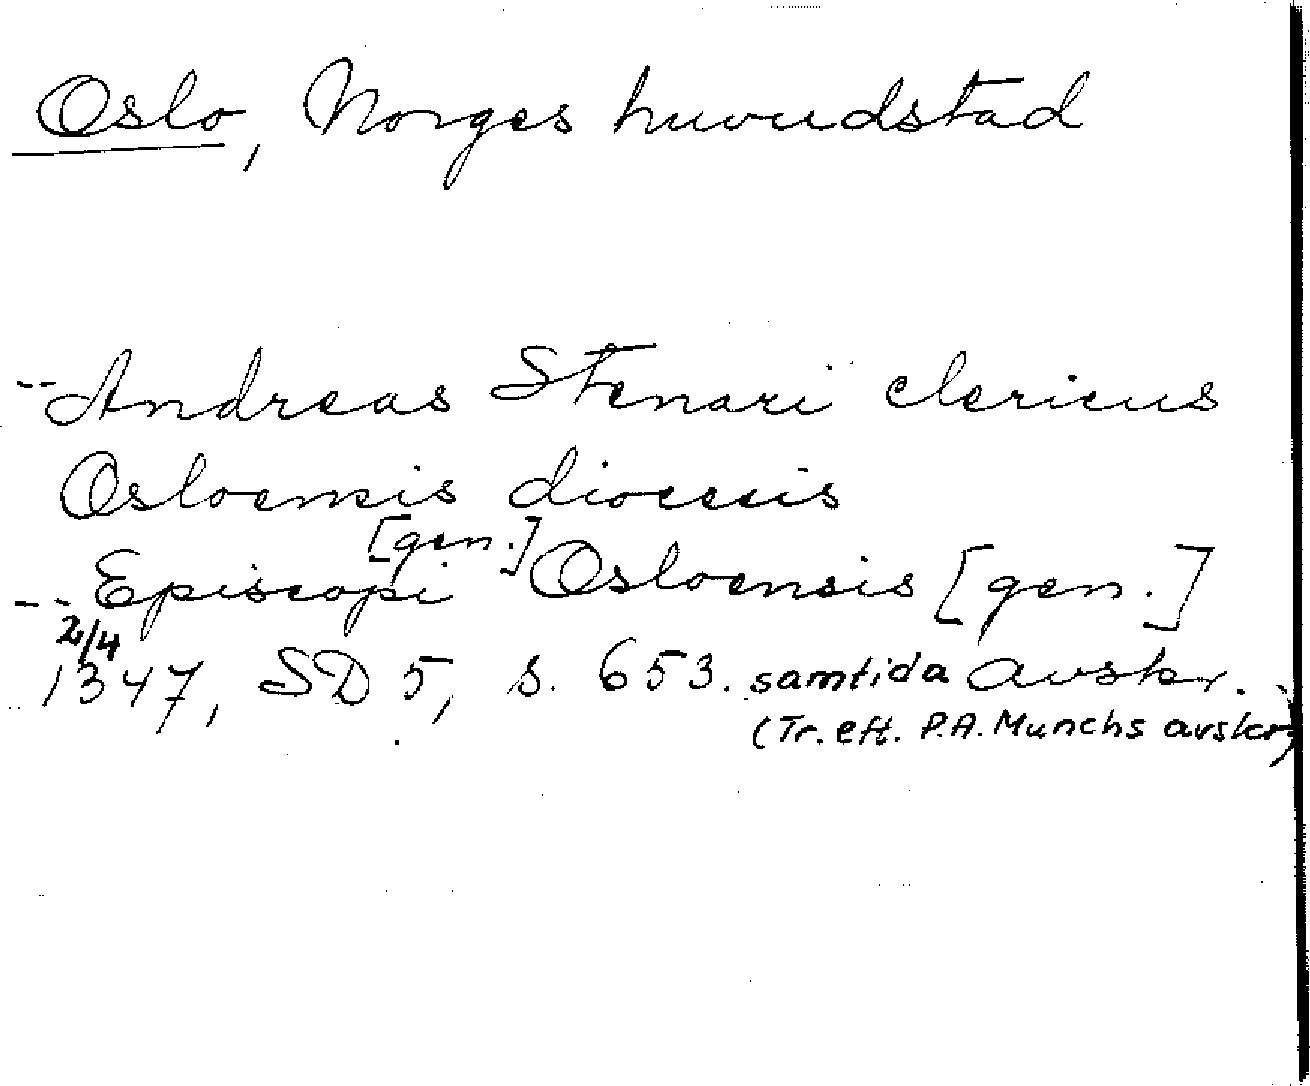 Oslo, Norges huvudstad
-- Andreas Stenari clericus
Osloensis diocesis
[gen.]
-- Episcopi Osloensis [gen.]
2/4
1347, SD 5, s. 653. samtida avskr.
(Tr. eft. P.A. Munchs avskr)